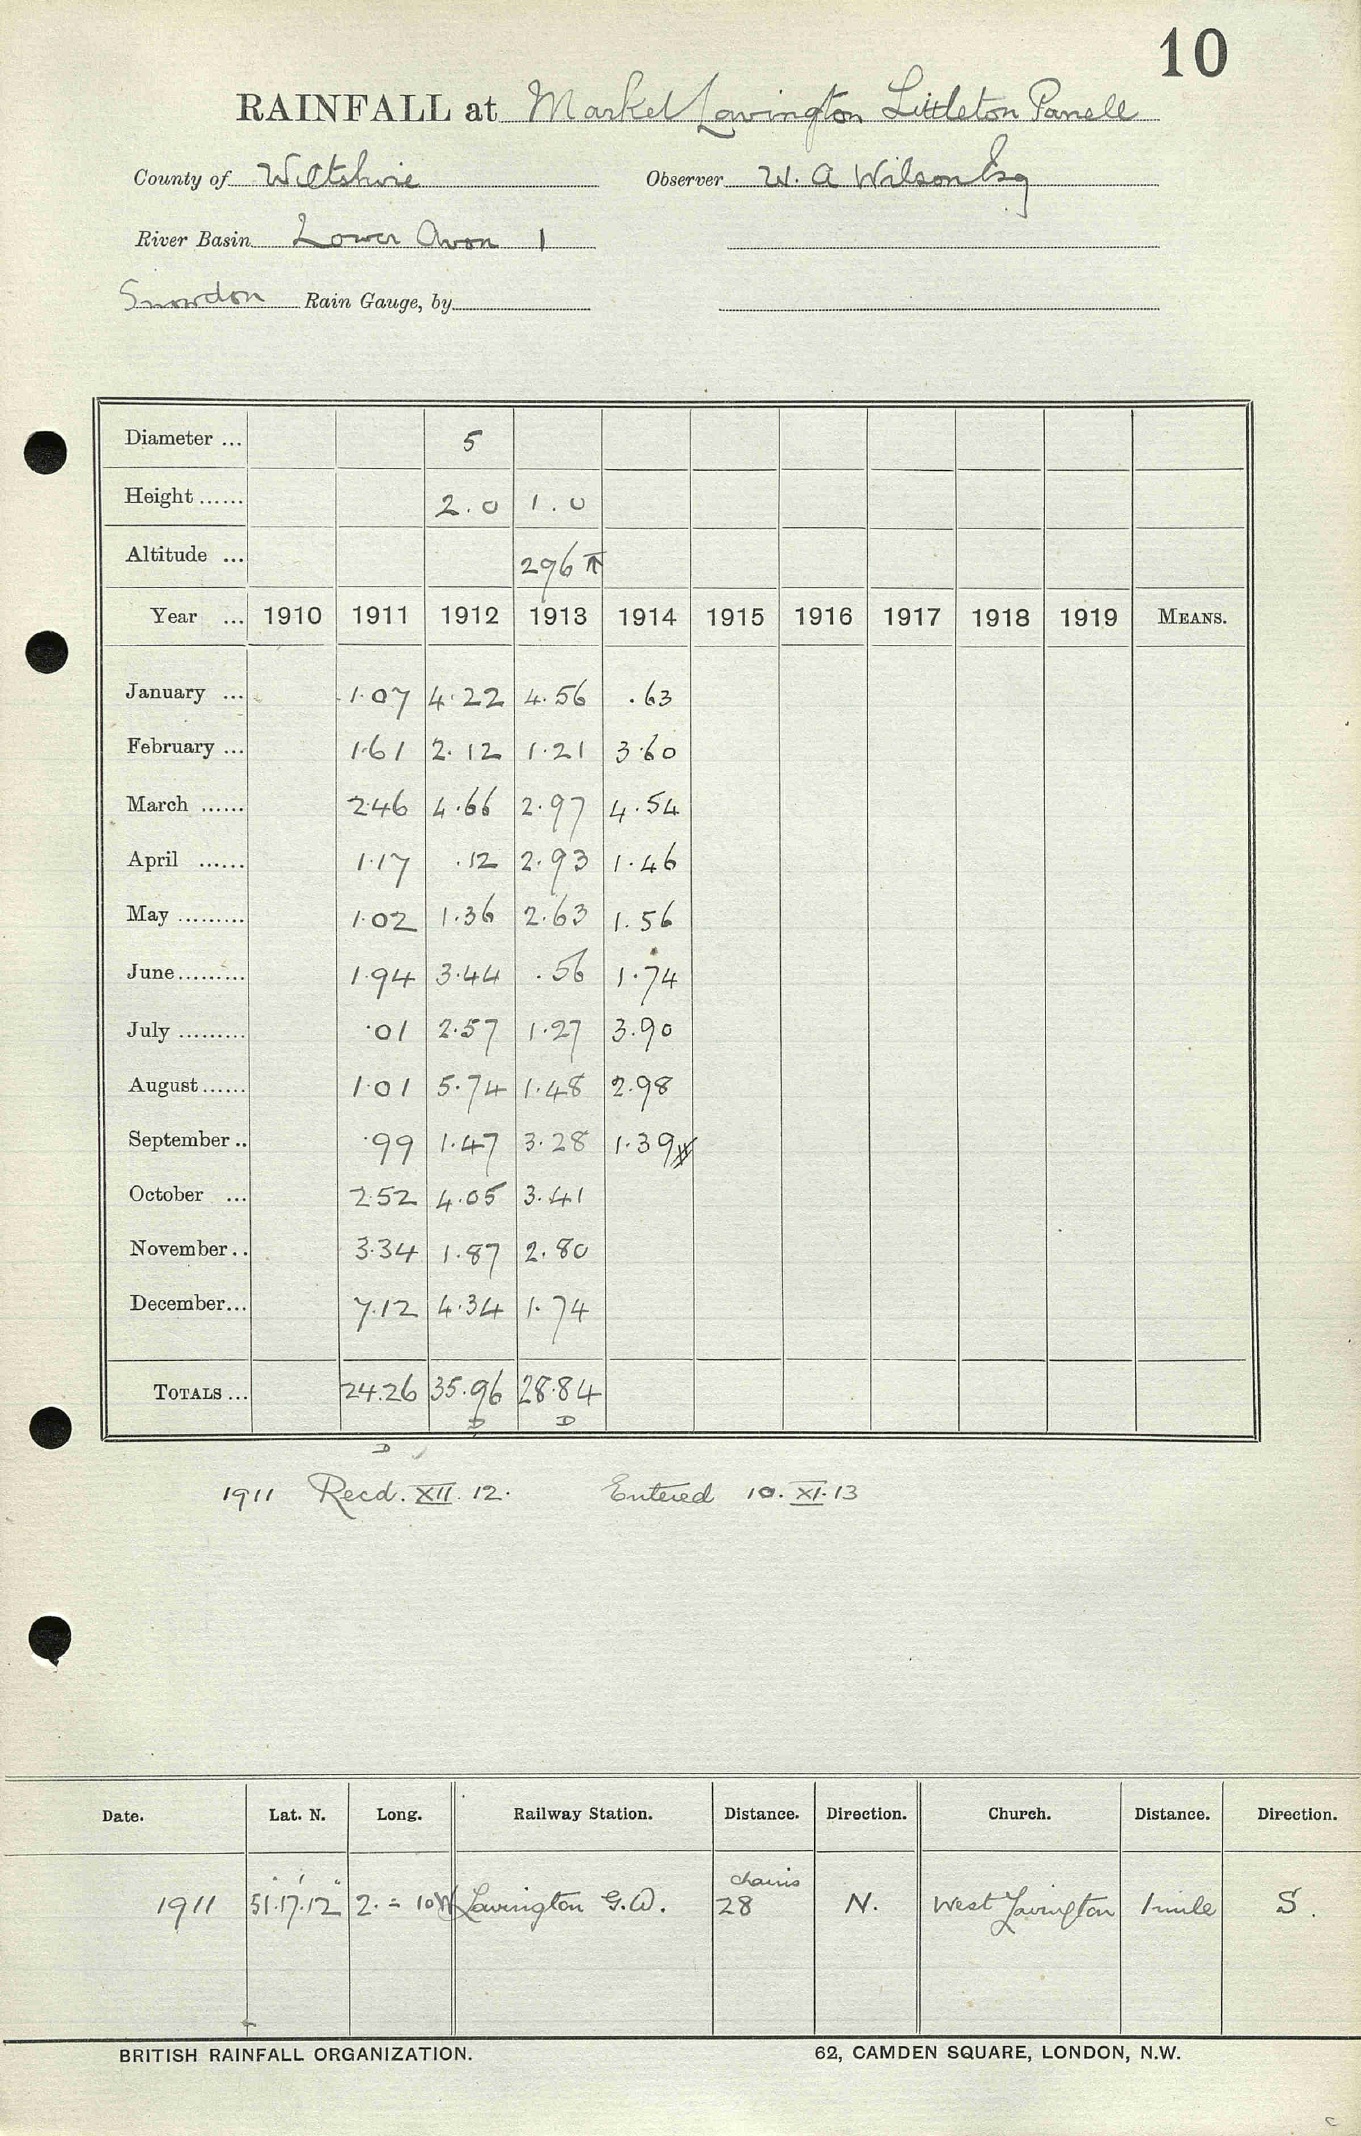 10
RAINFALL at Market Lavington Littleton Panell
County of Wiltshire Observer W. A Wilson Esq
River Basin Lower Avon 1
Snowdon Rain Gauge, by
Diameter ... 5
Height ...... 2.0 1.0
Altitude ... 296
Year ... 1910 1911 1912 1913 1914 1915 1916 1917 1918 1919 MEANS.
January ... 1.07 4.22 4.56 .63
February ... 1.61 2.12 1.21 3.60
March ...... 2.46 4.66 2.97 4.54
April ...... 1.17 .12 2.93 1.46
May ......... 1.02 1.36 2.63 1.56
June......... 1.94 3.44 .56 1.74
July ......... .01 2.57 1.27 3.90
August...... 1.01 5.74 1.48 2.98
September .. .99 1.47 3.28 1.39
October ... 2.52 4.05 3.41
November .. 3.34 1.87 2.80
December... 7.12 4.34 1.74
TOTALS ... 24.26 35.96 28.84
D D
D
1911 Recd. XII. 12. Entered 10. XI. 13
Date. Lat. N. Long. Railway Station. Distance. Direction. Church. Distance. Direction.
chains
1911 51°.17'.12" 2. = 10W Lavington G.W. 28 N. West Lavington 1 mile S.
BRITISH RAINFALL ORGANIZATION. 62, CAMDEN SQUARE, LONDON, N.W.